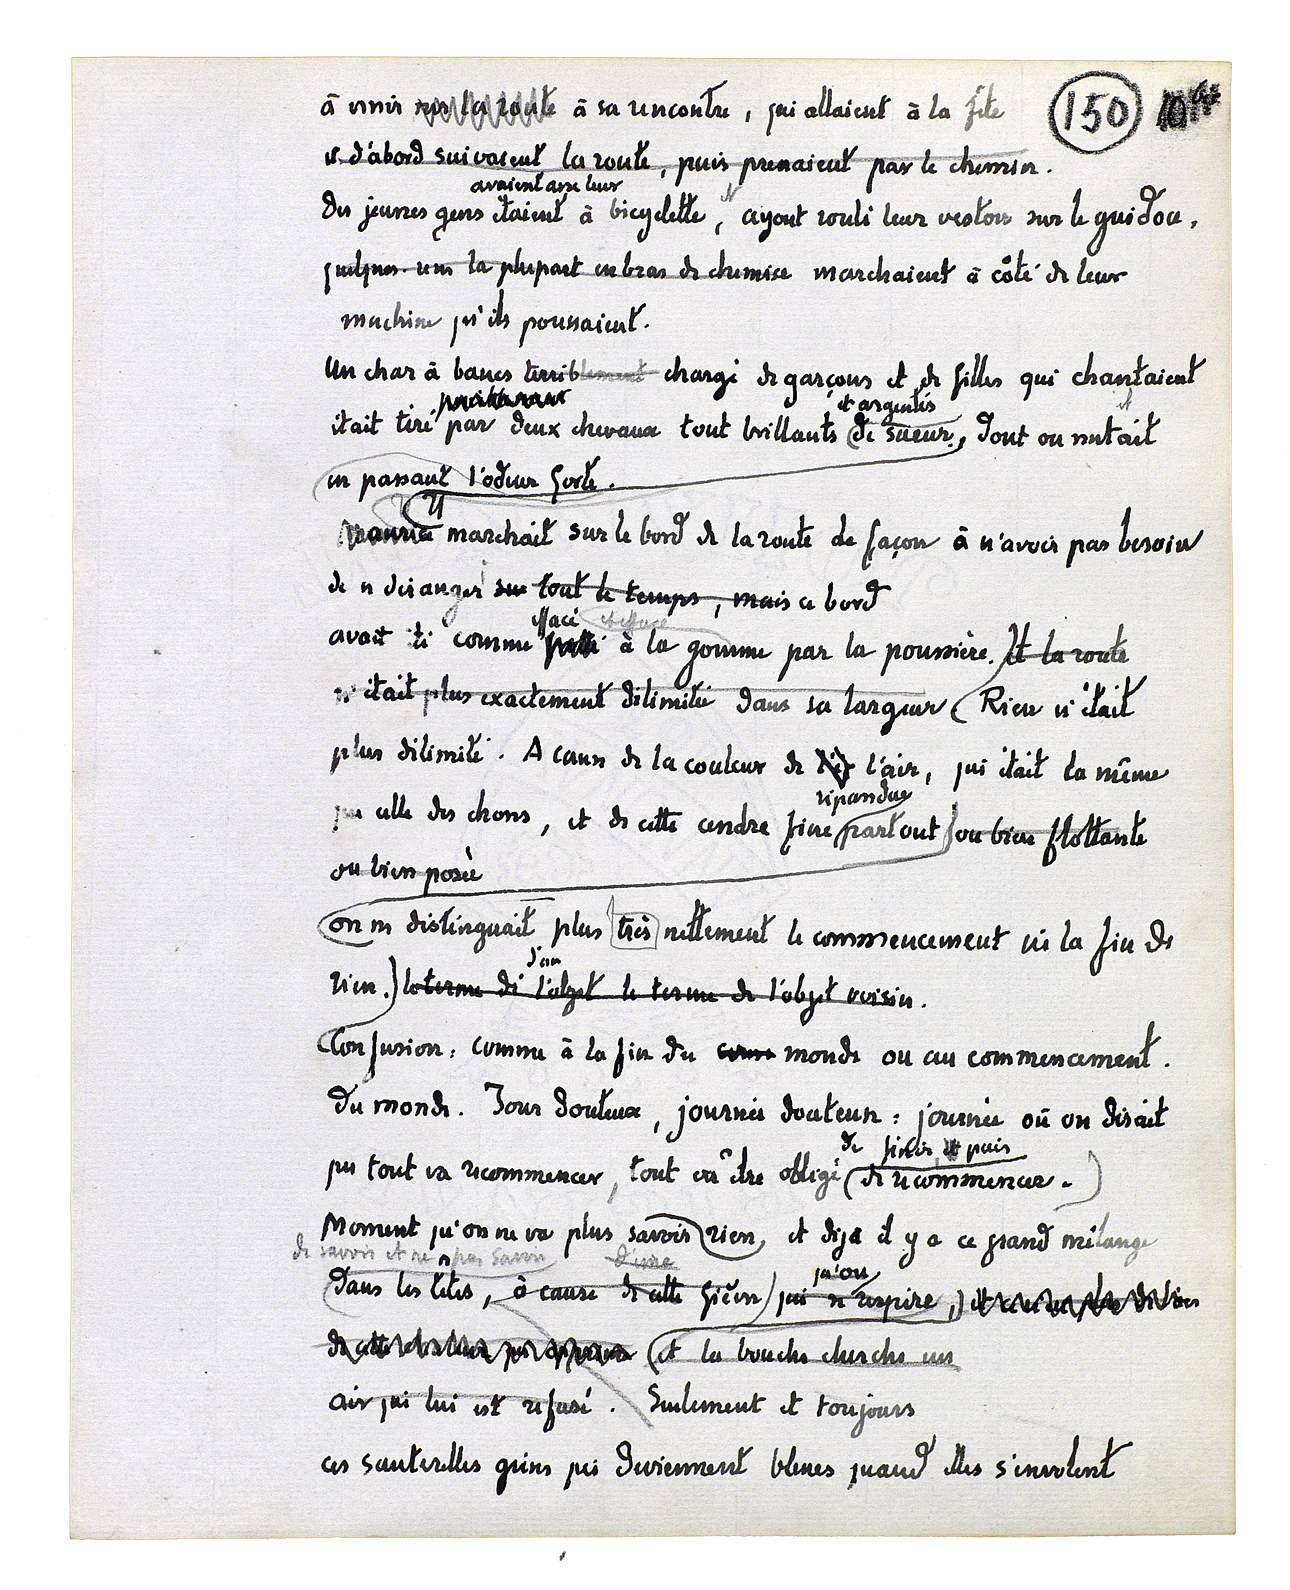 150
à venir sur la route à sa rencontre, qui allaient à la fête
et d'abord suivaient la route, puis prenaient par le chemin.
avaient avec leur
Des jeunes gens étaient à bicyclette, ayant roulé leur veston sur le guidon,
quelques-uns la plupart en bras de chemise marchaient à côté de leur
machine qu'ils poussaient.
Un char à bancs terriblement chargé de garçons et de filles qui chantaient
et argentés
était tiré par deux chevaux tout brillants de sueur, dont on sentait
en passant l'odeur forte.
Il
Maurice marchait sur le bord de la route de façon à n'avoir pas besoin
de se déranger tout le temps, mais ce bord
effacé et effacé
avait été comme à la gomme par la poussière. Et la route
n'était plus exactement délimitée dans sa largeur (Rien n'était
plus délimité. A cause de la couleur de l'air, qui était la même
répandue
que celle des choses, et de cette cendre fine partout ou bien flottante
ou bien posée
on ne distinguait plus très nettement le commencement ni la fin de
d'un
rien.) le terme de l'objet le terme de l'objet voisin.
Confusion : comme à la fin du monde ou au commencement.
du monde. Jour douteux, journée douteuse : journée où on disait
de finir, et puis
que tout va recommencer, tout va être obligé (de recommencer.)
Moment qu'on ne va plus savoir rien, et déjà il y a ce grand mélange
de savoir et ne pas savoir d'une
dans les têtes, à cause de cette fièvre
qu'on
qui respire,
et la bouche cherche un
air qui lui est refusé. Seulement et toujours
ces sauterelles grises qui deviennent bleues quand elles s'envolent